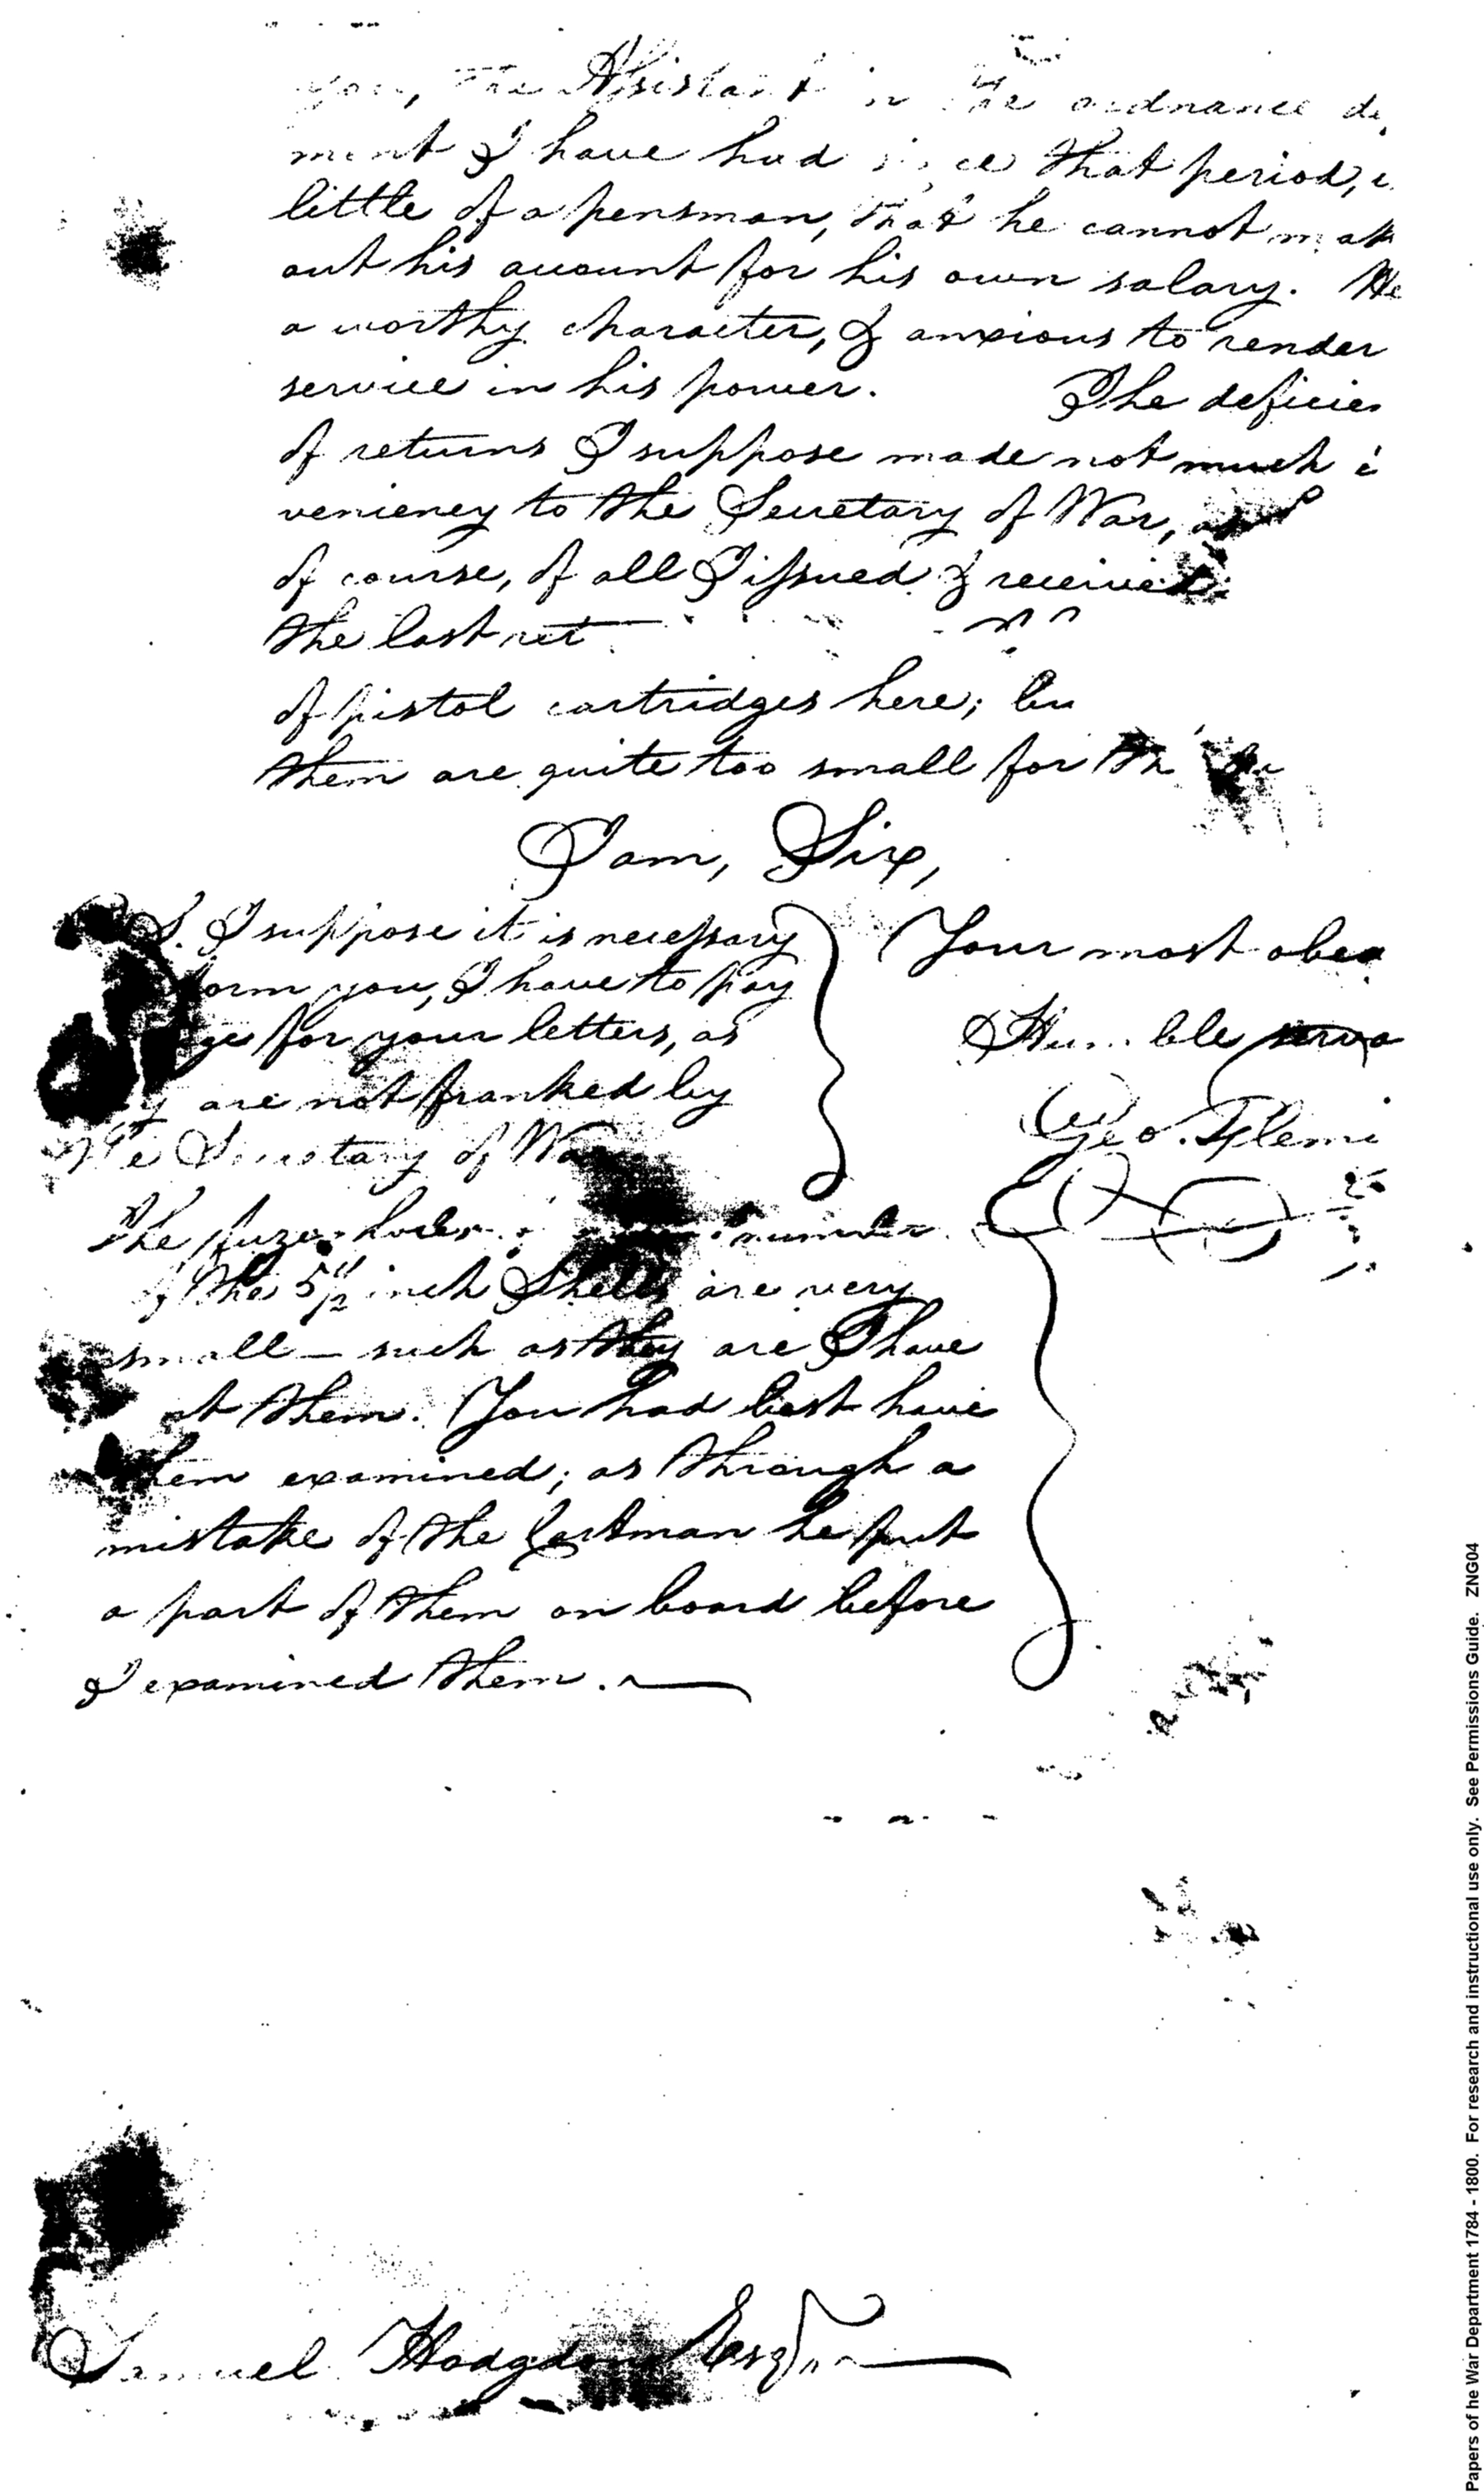 you, the Assistant in the ordnance de
ment I have had since that period, i
little of a pensman, that he cannot mak
out his account for his own salary. He
a worthy character, & anxious to render
service in his power. The deficien
of returns I suppose made not much i
veniency to the Secretary of War,
of course, of all I issued & received
the last ret
of pistol cartridges here; bu
them are quite too small for th
I am, Sir,
Your most obed
& Humble serva
Geo. Flemi
S. I suppose it is necessary
form you, I have to pay
ge for your letters, as
y are not franked by
the Secretary of War
The fuze holes number
of the 5 1/2 inch Shells are very
small — such as they are I have
at them. You had best have
them examined; as through a
mistake of the Cartman he put
a part of them on board before
I examined them. —
Samuel Hodgdon Esqr.
Papers of he War Department 1784 - 1800. For research and instructional use only. See Permissions Guide. ZNG04